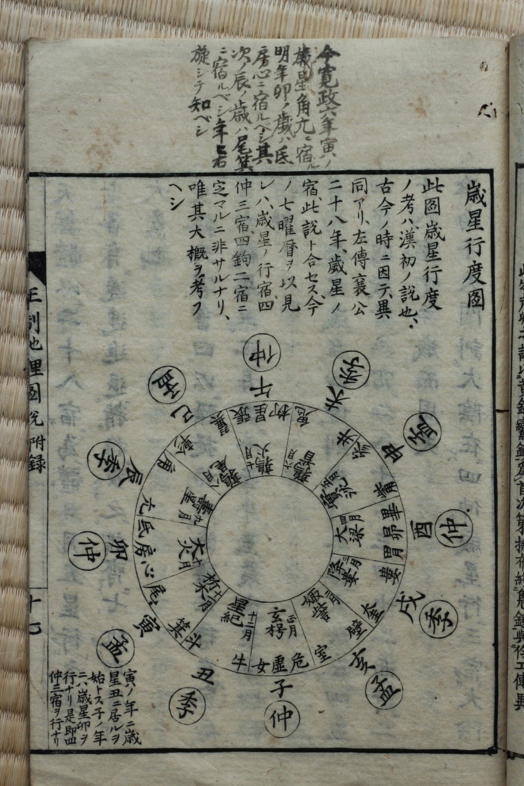 今寛政六年寅ノ
歳星角亢ニ宿ル
明年卯ノ歳ハ氐
房心ニ宿ルベシ其
次ノ辰ノ歳ハ尾箕
ニ宿ルベシ年々右
旋シテ知ベシ
歳星行度図
此図歳星行度
ノ考ハ漢初ノ説也、
古今ノ時ニ因テ異
同アリ、左傳襄公
二十八年、歳星ノ
宿此説ト合セス、今
ノ七曜暦ヲ以見
レハ、歳星ノ行宿四
仲三宿四鈎二宿ニ
定マルニ非サルナリ、
唯其大概ヲ考フ
ヘシ
仲
午
季
未
孟
申
仲
酉
季
戌
孟
亥
仲
子
季
丑
孟
寅
仲
卯
季
辰
孟
巳
柳星張
鬼
井
参
觜
畢昴胃
婁
奎
壁
室
危虚女
牛
斗
箕
尾
心房氐
亢
角
軫
翼
鶉火
鶉尾
大梁
玄枵
星紀
寅ノ年ニ歳
星丑ニ居ルヲ
始トス子ノ年
ニハ歳星卯ヲ
行ナリ是即四
仲三宿ヲ行ナリ
附録
十七